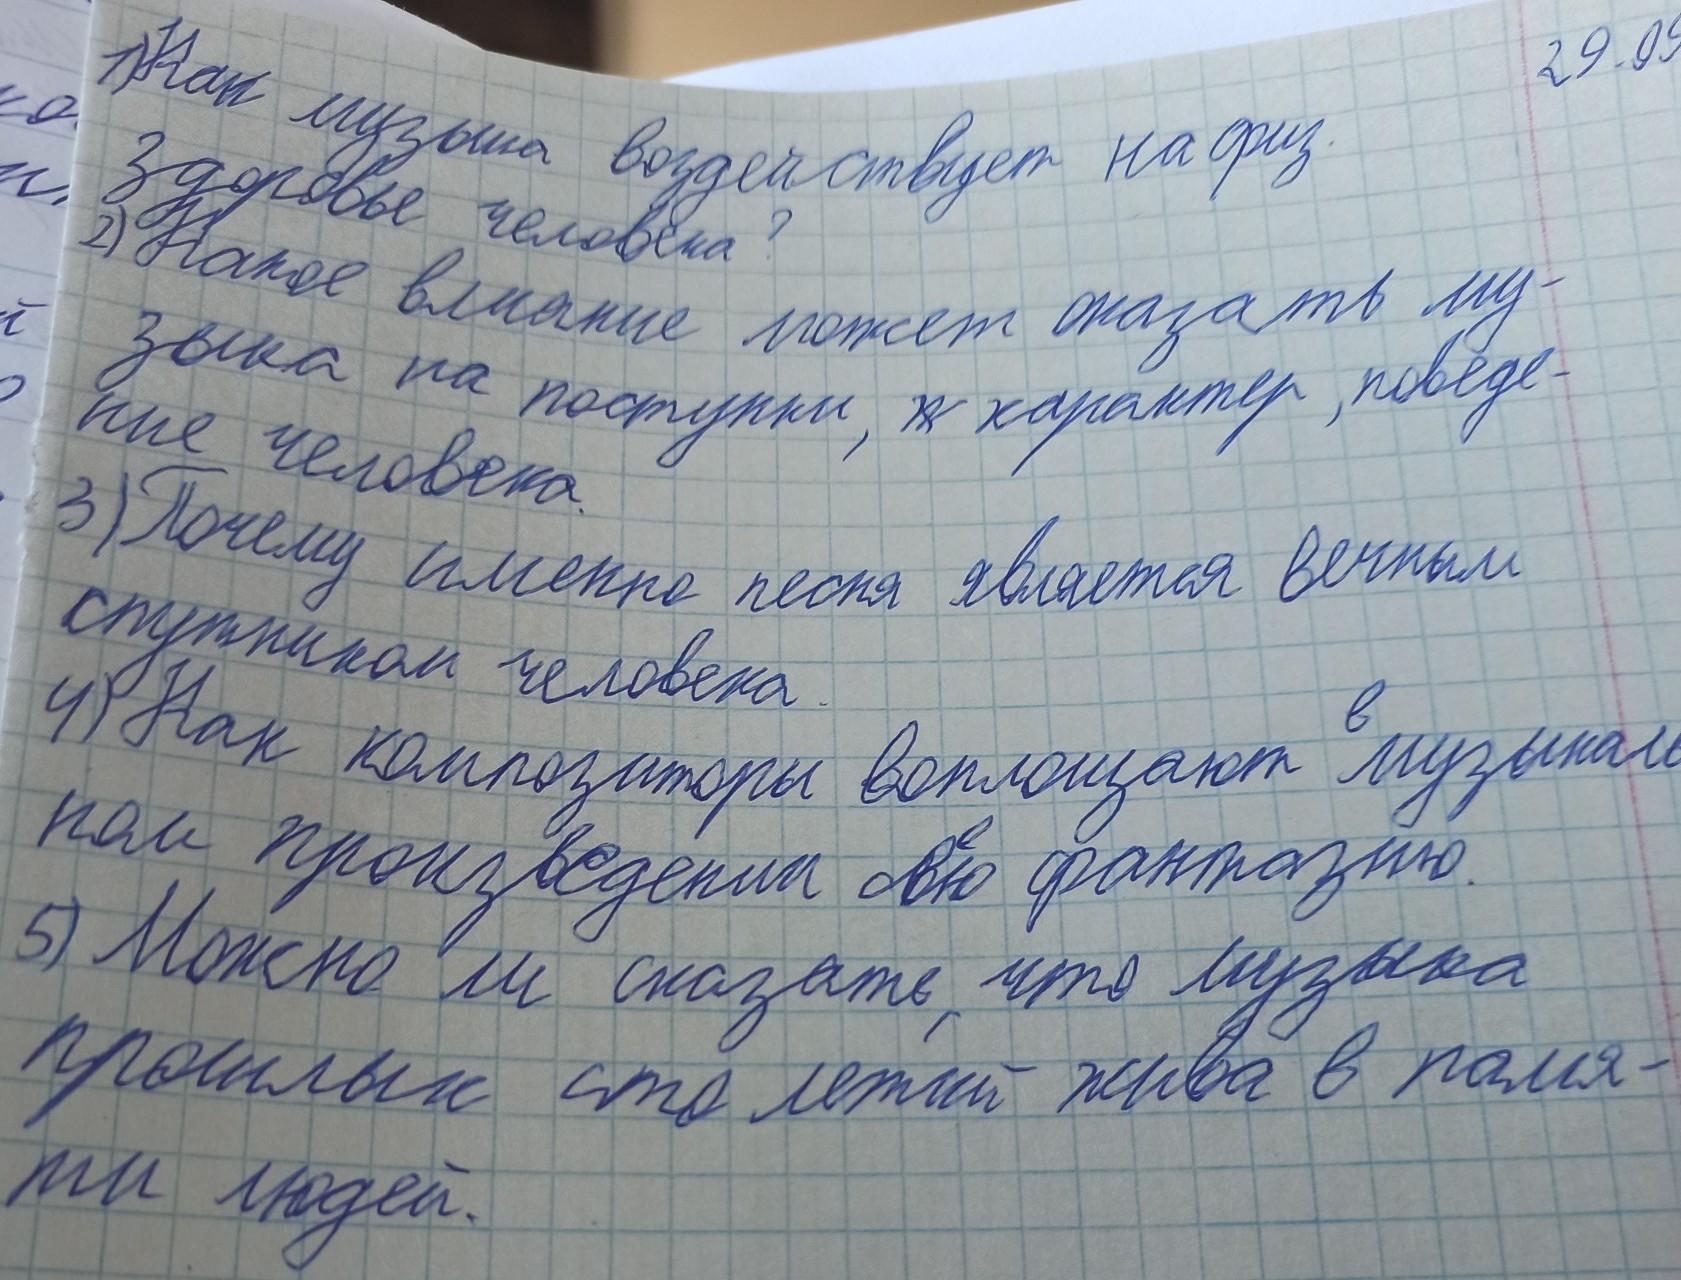 29.09
1) Как музыка воздействует на физ.
здоровье человека?
2) Какое влияние может оказать му-
зыка на поступки, характер, поведе-
ние человека.
3) Почему именно песня является вечным
спутником человека.
4) Как композиторы воплощают в музыкаль
ном произведении свою фантазию.
5) Можно ли сказать, что музыка
прошлых столетий жива в памя-
ти людей.